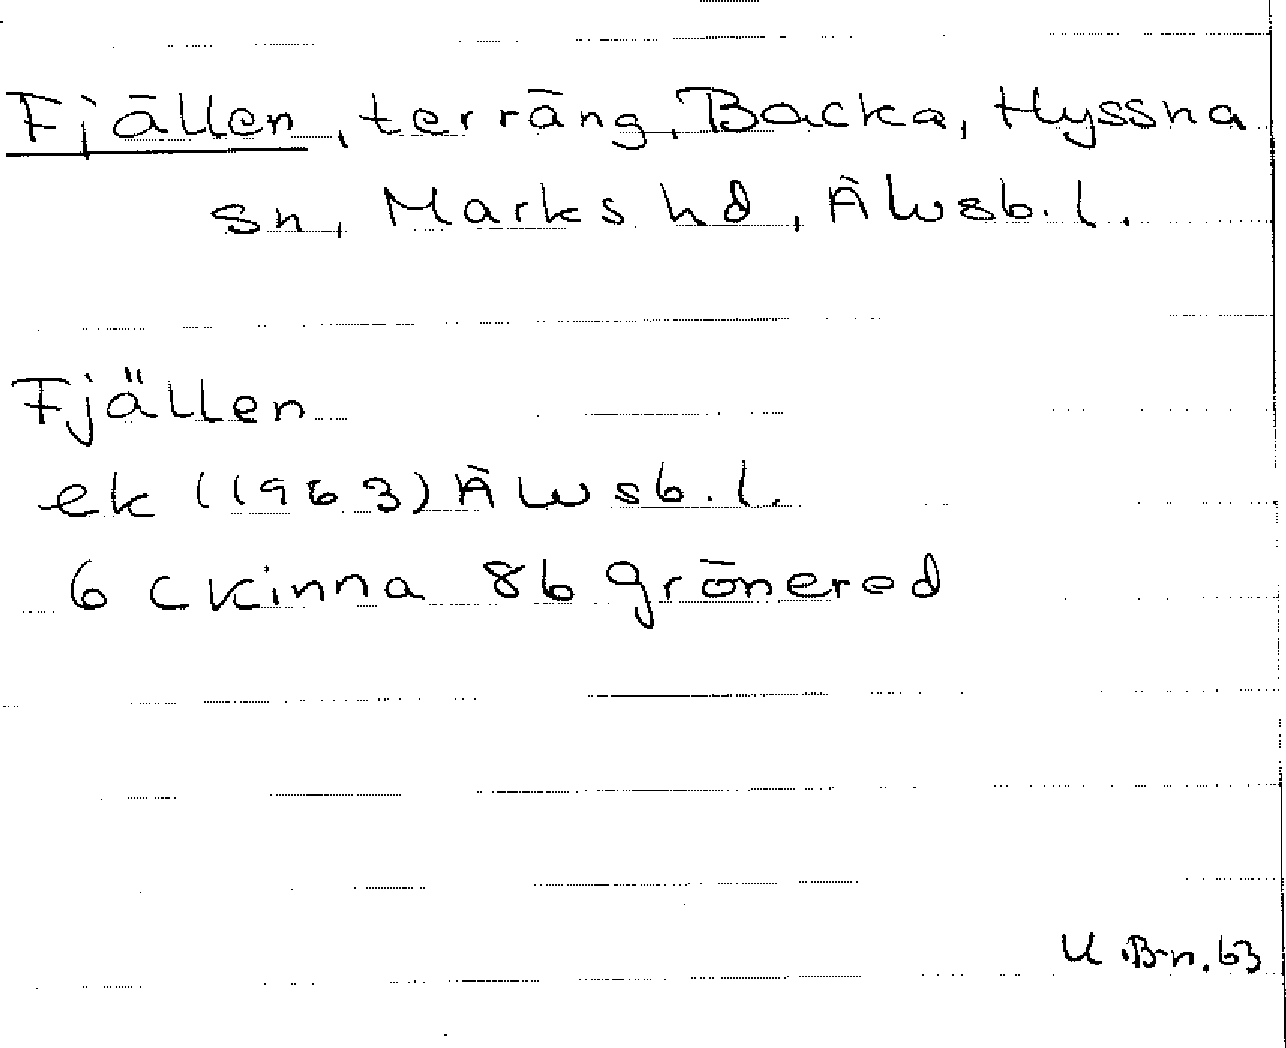 Fjällen, terräng, Backa, Hyssna
sn, Marks hd, Älvsb. l.
Fjällen
ek (1963) Älvsb. l.
6 C Kinna 8b Grönered
U Bn. 63